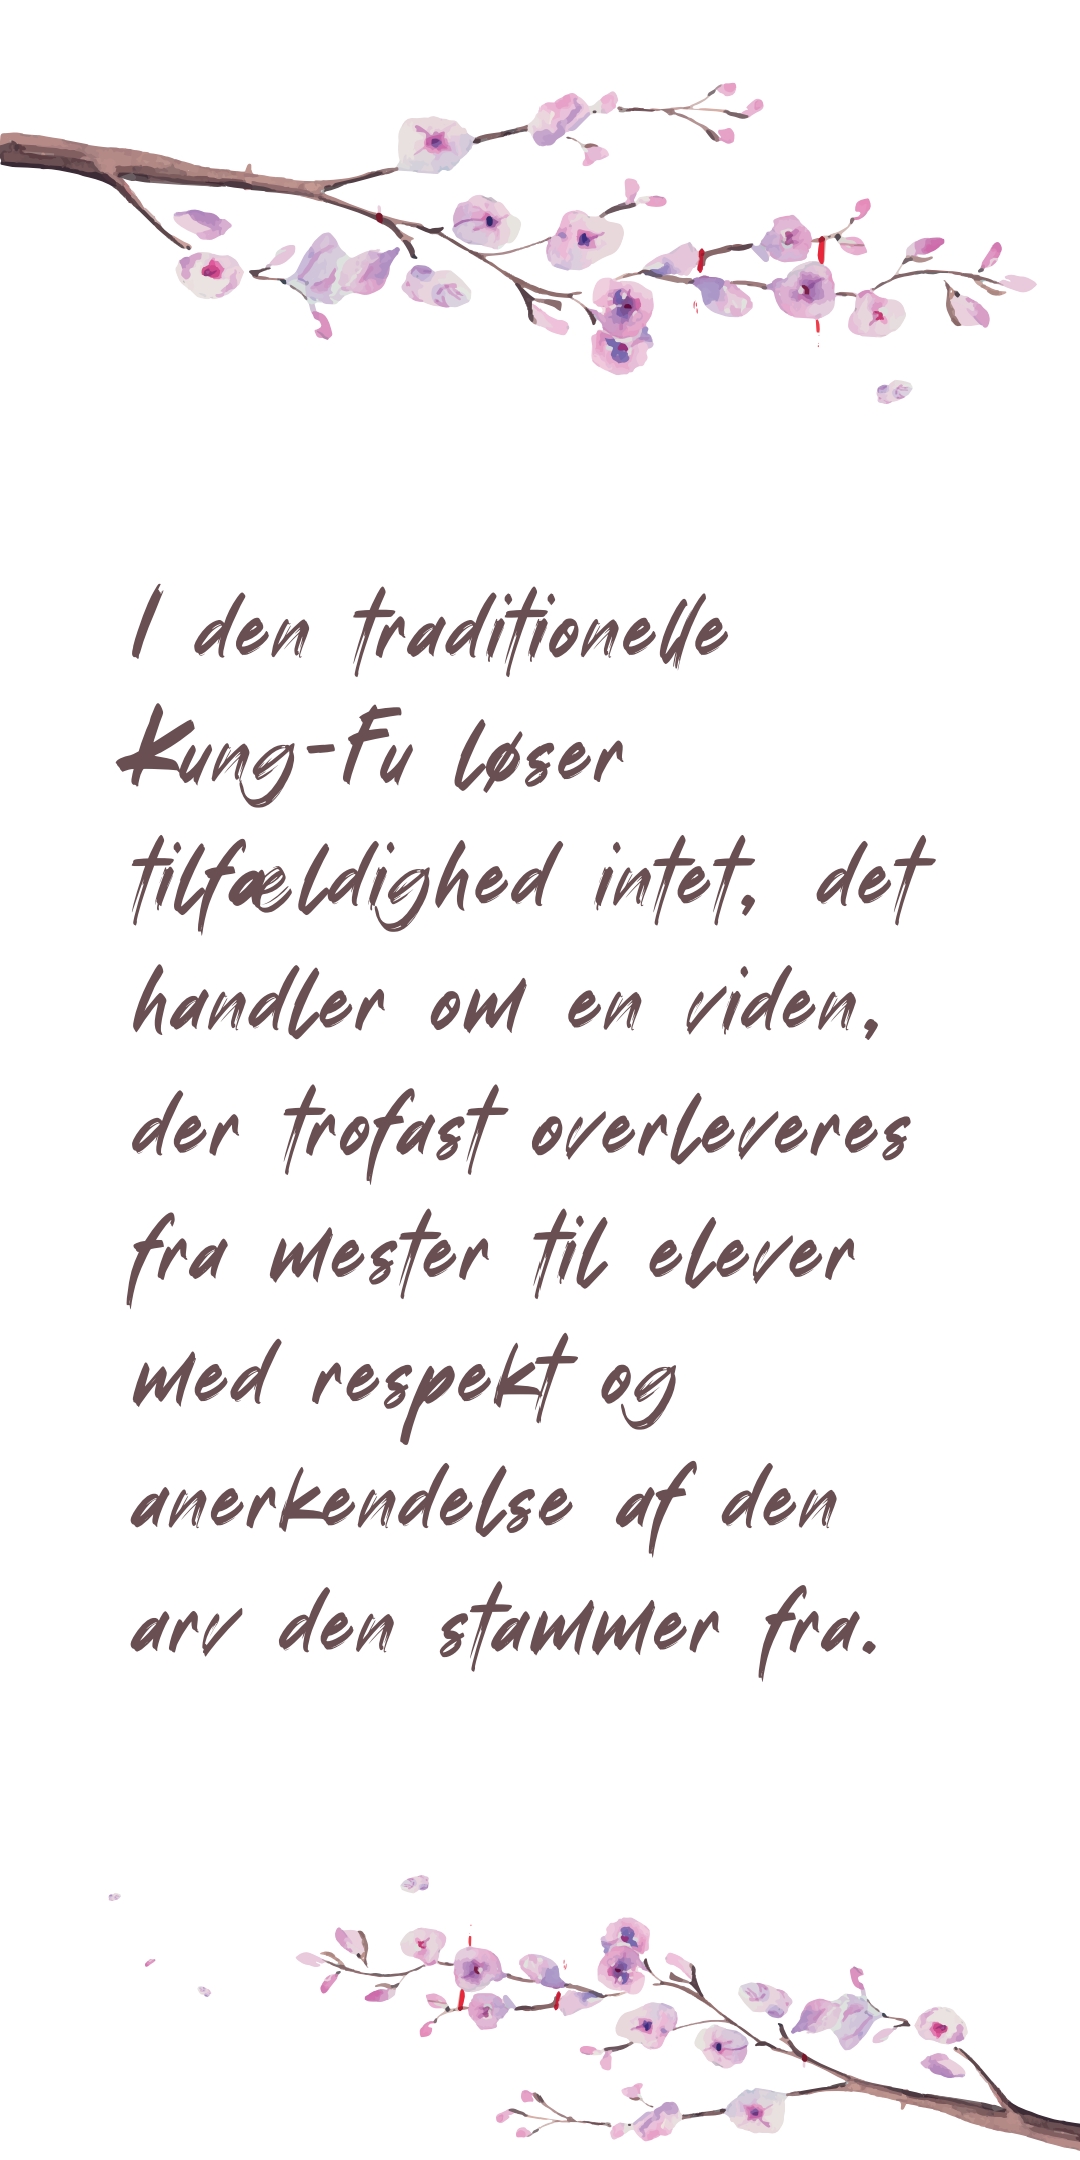 I den traditionelle
Kung-Fu løser
tilfældighed intet, det
handler om en viden,
der trofast overleveres
fra mester til elever
med respekt og
anerkendelse af den
arv den stammer fra.